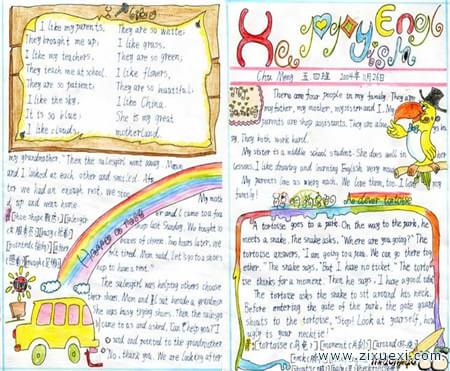 I like my parents,
They brought me up.
I like my teachers,
They teach me at school.
They are so patient.
I like the sky,
It is so blue.
I like clouds,
They are so white.
I like grass,
They are so green,
I like flowers,
They are so beautiful.
I like China.
It is so great
motherland.
my grandmother." Then the salesgirl went away. Mom
and I looked at each other and smiled. Af
ter we had an enough rest, we stood
up and went home.
My moth
er and I came to a
shop last Sunday. We bought two
pieces of. Two hours later, we
felt tired. Mom said, Let's go to a shoes
shop to have a rest."
The salesgirl was helping others choose
their shoes. Mom and I sat beside a grandmo
was busy trying shoes. Then the salesgirl
came to us and asked, Can I help you? I
said and pointed to the grandmother
No, thank you. We are looking after
Happy English
2009年 11月26日
There are four people in my family. They are
my father, my mother, my sister and I. My
parents are shop assistants. They are
They both work hard.
My sister is a middle school student. She does well in
lessons. I like drawing and learning English very much.
My parents love us very much. We love them, too. I love
family!
A tortoise goes to a park. On the way to the park, he
meets a snake. The snake asks, "Where are you going?" The
tortoise answers, "I am going to a park. We can go there tog
ether." The snake says, "But I have no ticket." The tor
toise thinks for a moment. Then, he says, I have a good idea
The tortoise asks the snake to sit around his neck.
Before entering the gate of the park, the gate guard
shouts to the tortoise, "Stop! Look at yourself, how
ugly is your necktie!"
www.zixuexi.com